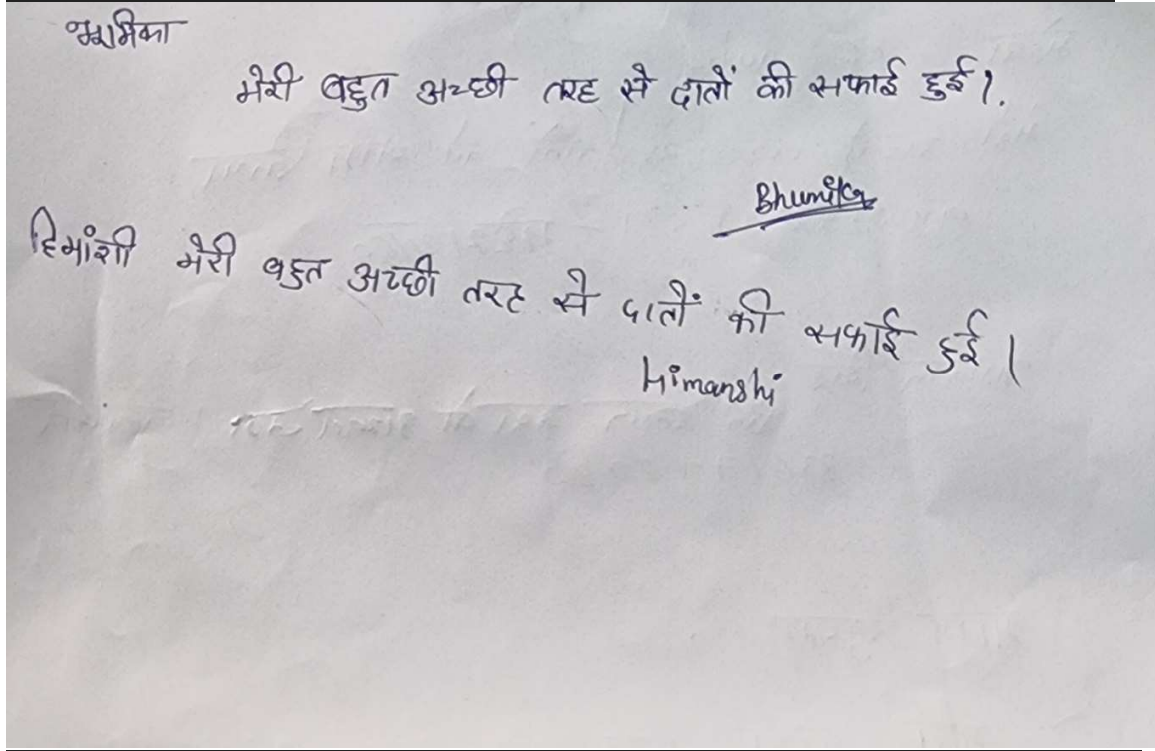 भूमिका
मेरी बहुत अच्छी तरह से दातों की सफाई हुई।.
Bhumika
हिमांशी मेरी बहुत अच्छी तरह से दातों की सफाई हुई।
Himanshi